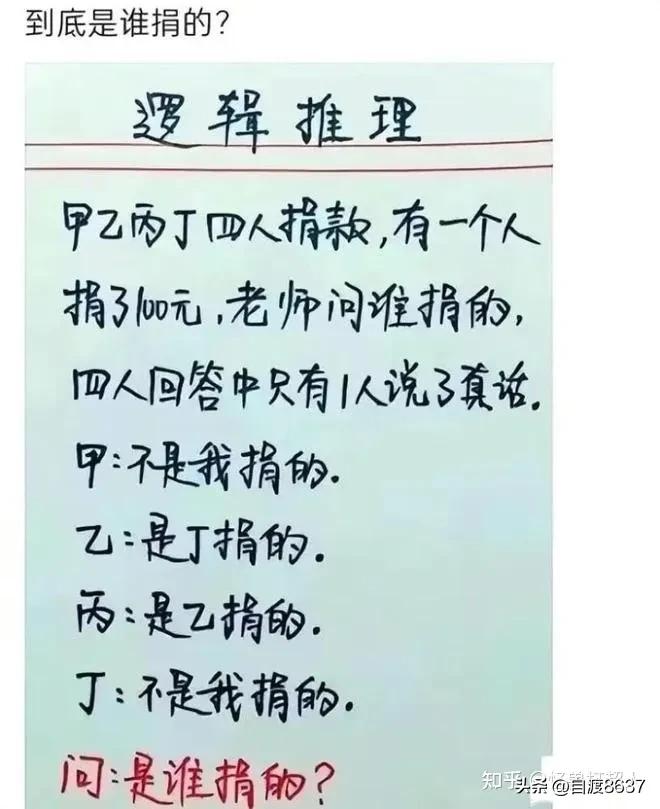 到底是谁捐的？
逻辑推理
甲乙丙丁四人捐款,有一个人
捐了100元,老师问谁捐的,
四人回答中只有1人说了真话.
甲:不是我捐的.
乙:是丁捐的.
丙:是乙捐的.
丁:不是我捐的.
问:是谁捐的?
知乎
头条@自渡8637